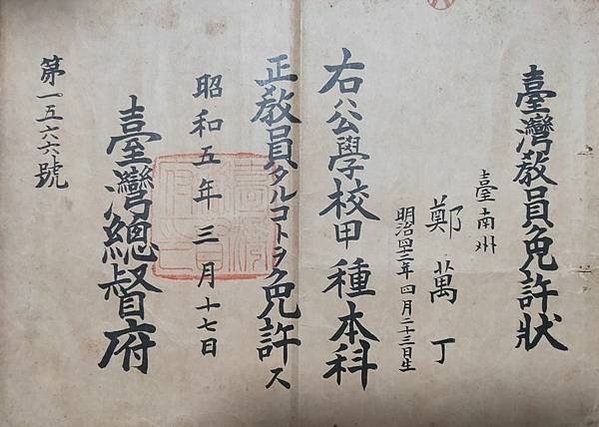 臺灣教員免許狀
臺南州
鄭萬丁
明治四三年四月二十三日生
右公學校甲種本科
正教員タルコトヲ免許ス
昭和五年三月十七日
臺灣總督府
第一五六六號